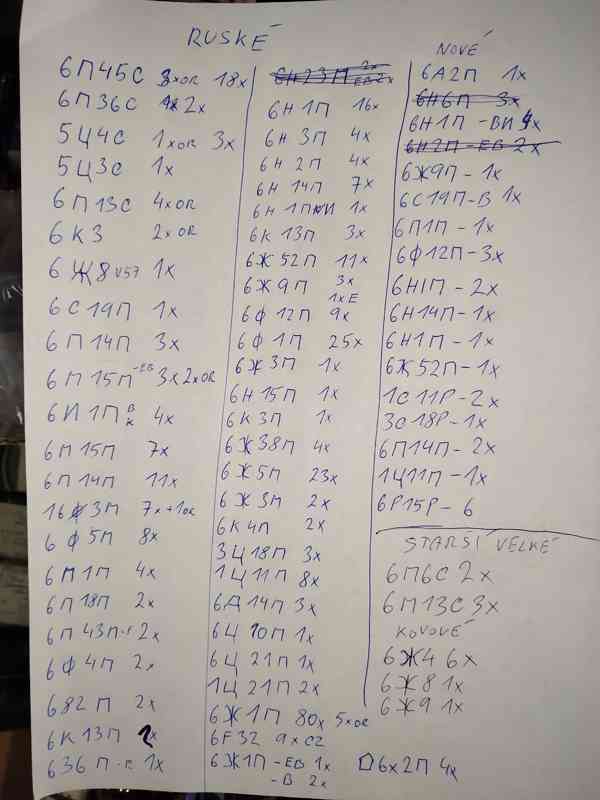 RUSKÉ
6П45С 3xOR 18x
6П36С 2x
5Ц4С 1xOR 3x
5Ц3С 1x
6П13С 4xOR
6К3 2xOR
6Ж8 1x
6С19П 1x
6П14П 3x
6П15П-ЕВ 3x 2xOR
6И1П В К 4x
6П15П 7x
6П14П 11x
7x+1OR
6Ф5П 8x
6П1П 4x
6П18П 2x
6П43П-Г 2x
6Ф4П 2x
2x
6К13П
1x
6Н23П 2x ЕВ 2x
6Н1П 16x
6Н3П 4x
6Н2П 4x
6Н14П 7x
1x
6К13П 3x
6Ж52П 11x
6Ж9П 3x
1xЕ
6Ф12П 9x
6Ф1П 25x
6Ж3П 1x
6Н15П 1x
6К3П 1x
6Ж38П 4x
6Ж5П 23x
6Ж3П 2x
6К4П 2x
3Ц18П 3x
1Ц11П 8x
6Д14П 3x
6Ц10П 1x
6Ц21П 1x
1Ц21П 2x
6Ж1П 80x 5xOR
6F32 9xCZ
6Ж1П-ЕВ 1x
-В 2x
NOVÉ
6А2П 1x
6Н6П 3x
6Н1П-ВИ 4x
6Н2П-ЕВ 2x
6Ж9П-1x
6С19П-В 1x
6П1П-1x
6Ф12П-3x
6Н1П-2x
6Н14П-1x
6Н1П-1x
6Ж52П-1x
1С11Р-2x
3С18Р-1x
6П14П-2x
1Ц11П-1x
6Р15Р-6
STARSÍ VELKÉ
6П6С 2x
6П13С 3x
KOVOVÉ
6Ж4 6x
6Ж8 1x
6Ж9 1x
6x2П 4x